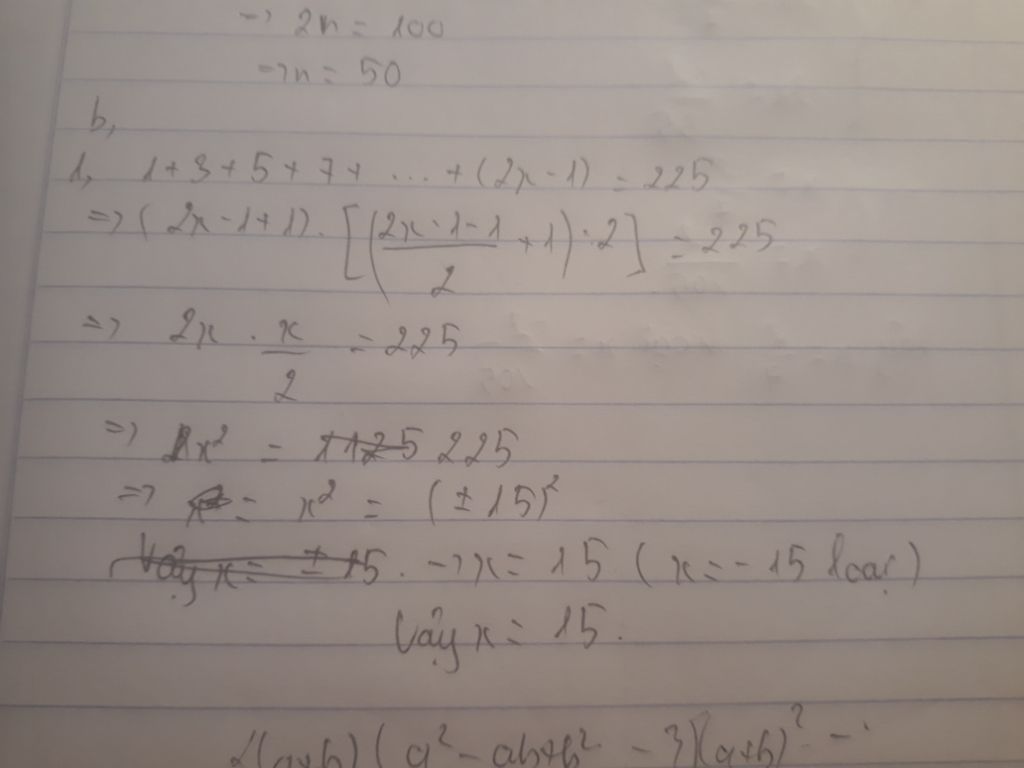 => 2n = 100
=> n = 50
b,
1, 1+3+5+7+ ... + (2x-1) = 225
=> (2x-1+1). [((2x-1-1)/2 + 1) : 2] = 225
=> 2x . x/2 = 225
=> x² = 225
=> x² = (±15)²
Vậy x = ±15. -> x = 15 (x = -15 loại)
Vậy x = 15.
2(a+b)(a²-ab+b² - 3)(a+b)² -